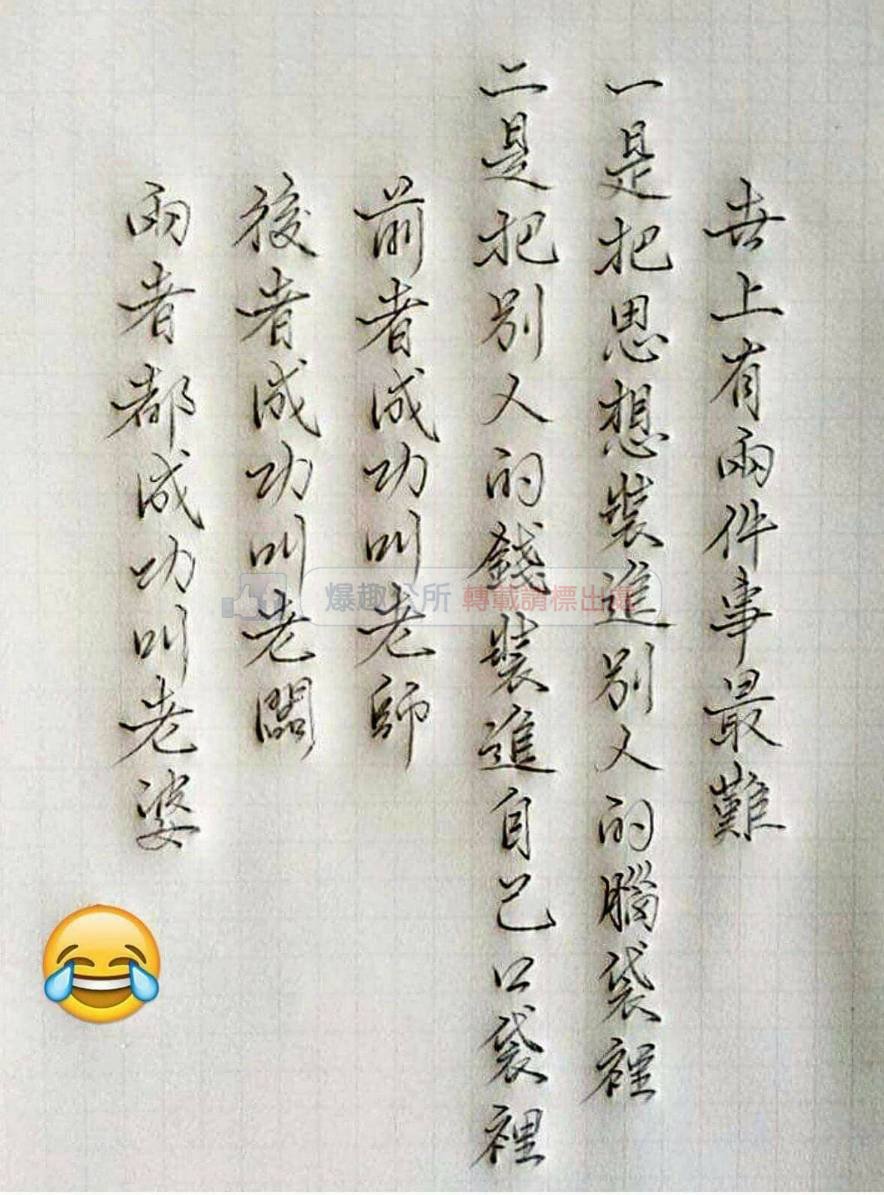 世上有兩件事最難
一是把思想裝進別人的腦袋裡
二是把別人的錢裝進自己口袋裡
前者成功叫老師
後者成功叫老闆
兩者都成功叫老婆
爆趣公所 轉載請標出處